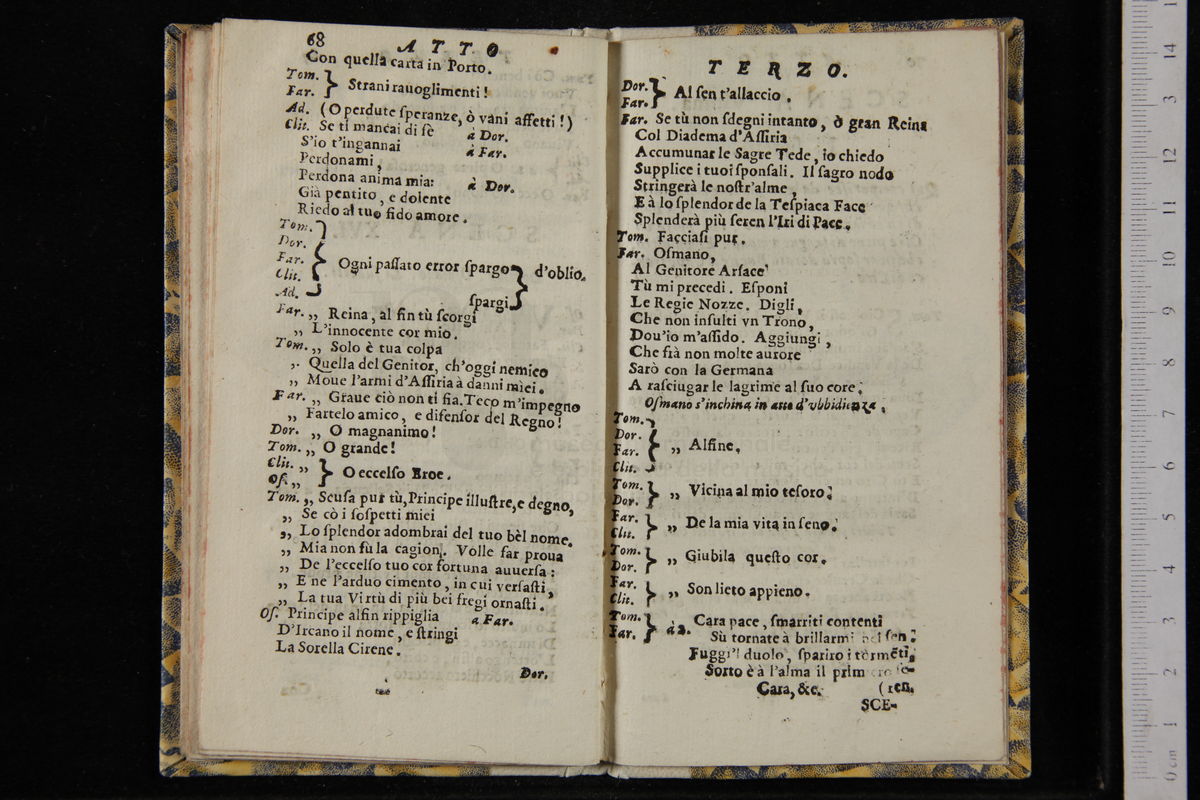 68 ATTO
Con quella carta in Porto.
Tom.
Far. } Strani rauoglimenti!
Ad. (O perdute ſperanze, ò vani affetti!)
Clit. Se ti mancai di fè à Dor.
S'io t'ingannai à Far.
Perdonami,
Perdona anima mia: à Dor.
Già pentito, e dolente
Riedo al tuo fido amore.
Tom.
Dor.
Far. } Ogni paſſato error ſpargo } d'oblio.
Clit.
Ad. ſpargi
Far. „ Reina, al fin tù ſcorgi
„ L'innocente cor mio.
Tom. „ Solo è tua colpa
„ Quella del Genitor, ch'oggi nemico
„ Moue l'armi d'Aſſiria à danni miei.
Far. „ Graue ciò non ti ſia. Teco m'impegno
„ Fartelo amico, e difenſor del Regno!
Dor. „ O magnanimo!
Tom. „ O grande!
Clit. „
Oſ. „ } O eccelſo Eroe.
Tom. „ Scuſa pur tù, Principe illuſtre, e degno,
„ Se cò i ſoſpetti miei
„ Lo ſplendor adombrai del tuo bèl nome.
„ Mia non fù la cagion. Volle far proua
„ De l'eccelſo tuo cor fortuna auuerſa:
„ E ne l'arduo cimento, in cui verſaſti,
„ La tua Virtù di più bei fregi ornaſti.
Oſ. Principe alfin rippiglia à Far.
D'Ircano il nome, e ſtringi
La Sorella Cirene.
Dor.
TERZO.
Dor.
Far. } Al ſen t'allaccio.
Far. Se tù non ſdegni intanto, ò gran Reina
Col Diadema d'Aſſiria
Accumunar le Sagre Tede, io chiedo
Supplice i tuoi ſponſali. Il ſagro nodo
Stringerà le noſtr'alme,
E à lo ſplendor de la Teſpiaca Face
Splenderà più ſeren l'Iri di Pace.
Tom. Facciaſi pur.
Far. Oſmano,
Al Genitore Arſace
Tù mi precedi. Eſponi
Le Regie Nozze. Digli,
Che non inſulti vn Trono,
Dou'io m'aſſido. Aggiungi,
Che frà non molte aurore
Sarò con la Germana
A raſciugar le lagrime al ſuo core.
Oſmano s'inchina in atto d'vbbidienza.
Tom.
Dor.
Far. } „ Alfine,
Clit.
Tom.
Dor. } „ Vicina al mio teſoro:
Far.
Clit. } „ De la mia vita in ſeno.
Tom.
Dor. } „ Giubila queſto cor.
Far.
Clit. } „ Son lieto appieno.
Tom.
Far. } à 2. Cara pace, ſmarriti contenti
Sù tornate à brillarmi nel ſen:
Fuggì'l duolo, ſpariro i tormēti,
Sorto è à l'alma il prim
Cara, &c. (ren.
SCE-